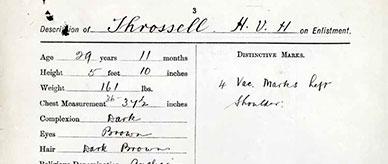 3
Description of Throssell H. V. H on Enlistment.
Age 29 years 11 months
Height 5 feet 10 inches
Weight 161 lbs.
Chest Measurement 36 39½ inches
Complexion Dark
Eyes Brown
Hair Dark Brown
DISTINCTIVE MARKS.
4 Vac. Marks left
Shoulder.